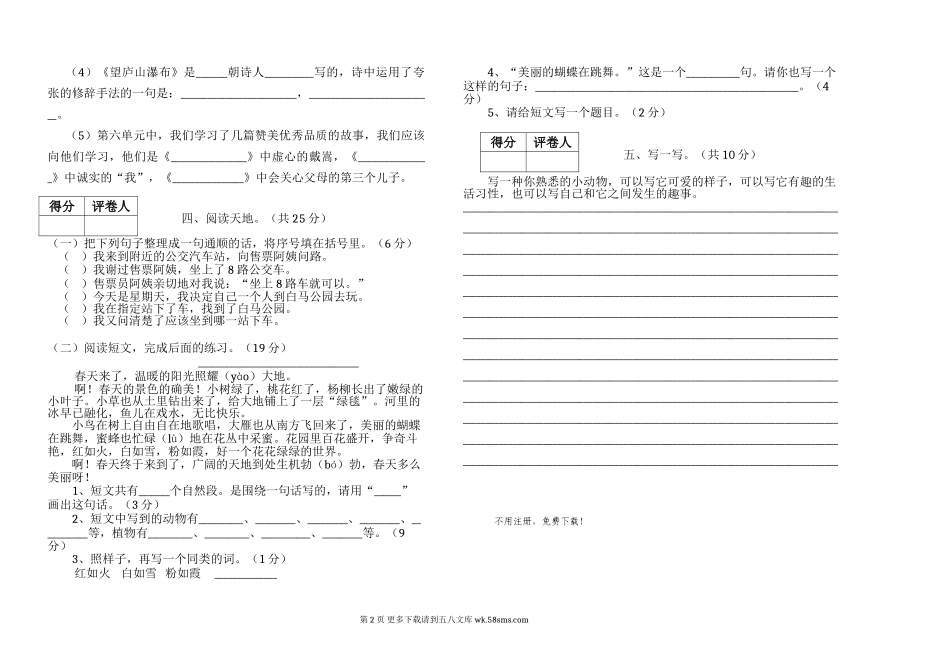 （4）《望庐山瀑布》是_____朝诗人________写的，诗中运用了夸
张的修辞手法的一句是：___________________，___________________
_。
（5）第六单元中，我们学习了几篇赞美优秀品质的故事，我们应该
向他们学习，他们是《____________》中虚心的戴嵩，《___________
_》中诚实的“我”，《___________》中会关心父母的第三个儿子。
得分 评卷人
四、阅读天地。（共 25 分）
（一）把下列句子整理成一句通顺的话，将序号填在括号里。（6 分）
（ ）我来到附近的公交汽车站，向售票阿姨问路。
（ ）我谢过售票阿姨，坐上了 8 路公交车。
（ ）售票员阿姨亲切地对我说：“坐上 8 路车就可以。”
（ ）今天是星期天，我决定自己一个人到白马公园去玩。
（ ）我在指定站下了车，找到了白马公园。
（ ）我又问清楚了应该坐到哪一站下车。
（二）阅读短文，完成后面的练习。（19 分）
__________________________
春天来了，温暖的阳光照耀（yào）大地。
啊！春天的景色的确美！小树绿了，桃花红了，杨柳长出了嫩绿的
小叶子。小草也从土里钻出来了，给大地铺上了一层“绿毯”。河里的
冰早已融化，鱼儿在戏水，无比快乐。
小鸟在树上自由自在地歌唱，大雁也从南方飞回来了，美丽的蝴蝶
在跳舞，蜜蜂也忙碌（lù）地在花丛中采蜜。花园里百花盛开，争奇斗
艳，红如火，白如雪，粉如霞，好一个花花绿绿的世界。
啊！春天终于来到了，广阔的天地到处生机勃（bó）勃，春天多么
美丽呀！
1、短文共有_____个自然段。是围绕一句话写的，请用“____”
画出这句话。（3 分）
2、短文中写到的动物有_______、______、______、______、_
______等，植物有_______、_______、________、______等。（9
分）
3、照样子，再写一个同类的词。（1 分）
红如火 白如雪 粉如霞 __________
4、“美丽的蝴蝶在跳舞。”这是一个_________句。请你也写一个
这样的句子：___________________________________________。（4
分）
5、请给短文写一个题目。（2 分）
得分 评卷人
五、写一写。（共 10 分）
写一种你熟悉的小动物，可以写它可爱的样子，可以写它有趣的生
活习性，也可以写自己和它之间发生的趣事。
不用注册，免费下载！
第 2 页 更多下载请到五八文库 wk.58sms.com